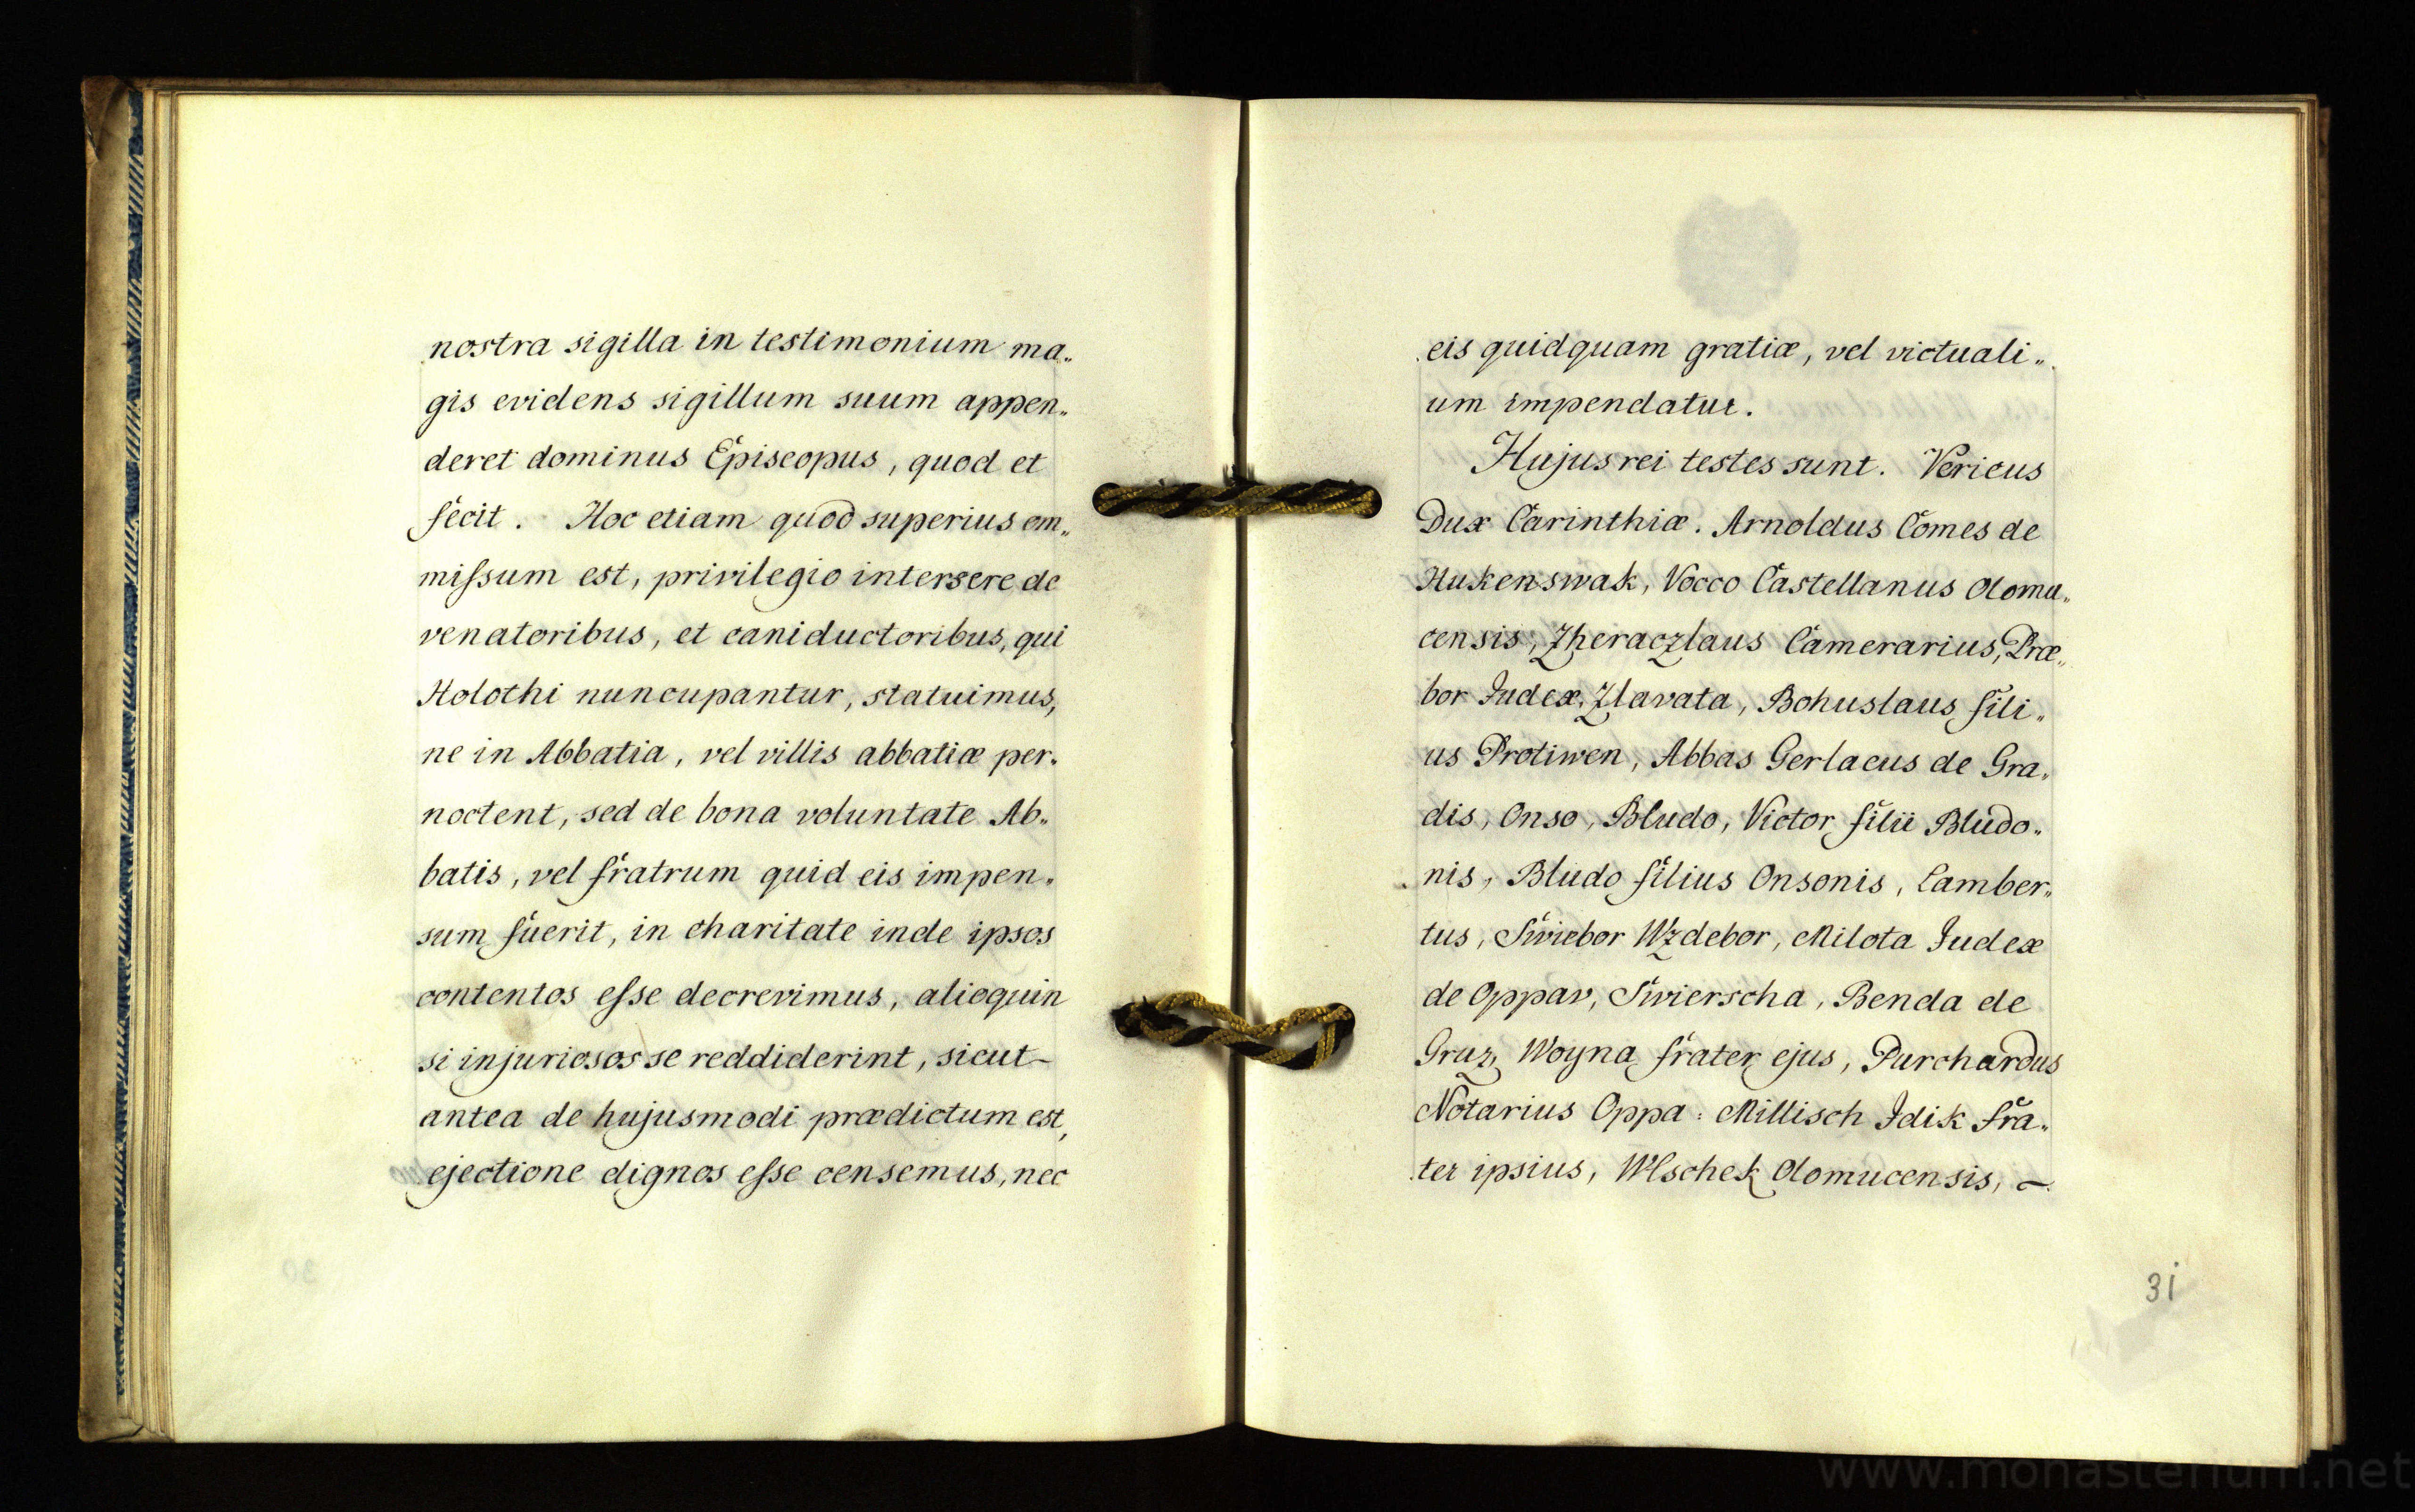 nostra sigilla in testimonium ma„
gis evidens sigillum suum appen„
deret dominus Episcopus, quod et
fecit. Hoc etiam quod superius om„
miſsum est, privilegio intersere de
venatoribus, et caniductoribus, qui
Holothi nuncupantur, statuimus,
ne in Abbatia, vel villis abbatiæ per„
noctent, sed de bona voluntate Ab„
batis, vel fratrum quid eis impen„
sum fuerit, in charitate inde ipsos
contentos eſse decrevimus, alioquin
si injuriosos se reddiderint, sicut
antea de hujusmodi prædictum est,
ejectione dignos eſse censemus, nec
eis quidquam gratiæ, vel victuali„
um impendatur.
Hujus rei testes sunt. Vericus
Dux Carinthiæ. Arnoldus Comes de
Hukenswak, Vocco Castellanus Olomu„
censis, Zheraczlaus Camerarius, Præ„
bor Judex, Zlavata, Bohuslaus fili„
us Protiwen, Abbas Gerlacus de Gra„
dis, Onso, Bludo, Victor filii Bludo„
nis, Bludo filius Onsonis, Lamber„
tus, Swiebor Wzdebor, Milota Judex
de Oppav, Swierscha, Benda de
Graz, Woyna frater ejus, Purchardus
Notarius Oppa: Millisch Idik fra„
ter ipsius, Wlschek Olomucensis,
31
www.monasterium.net